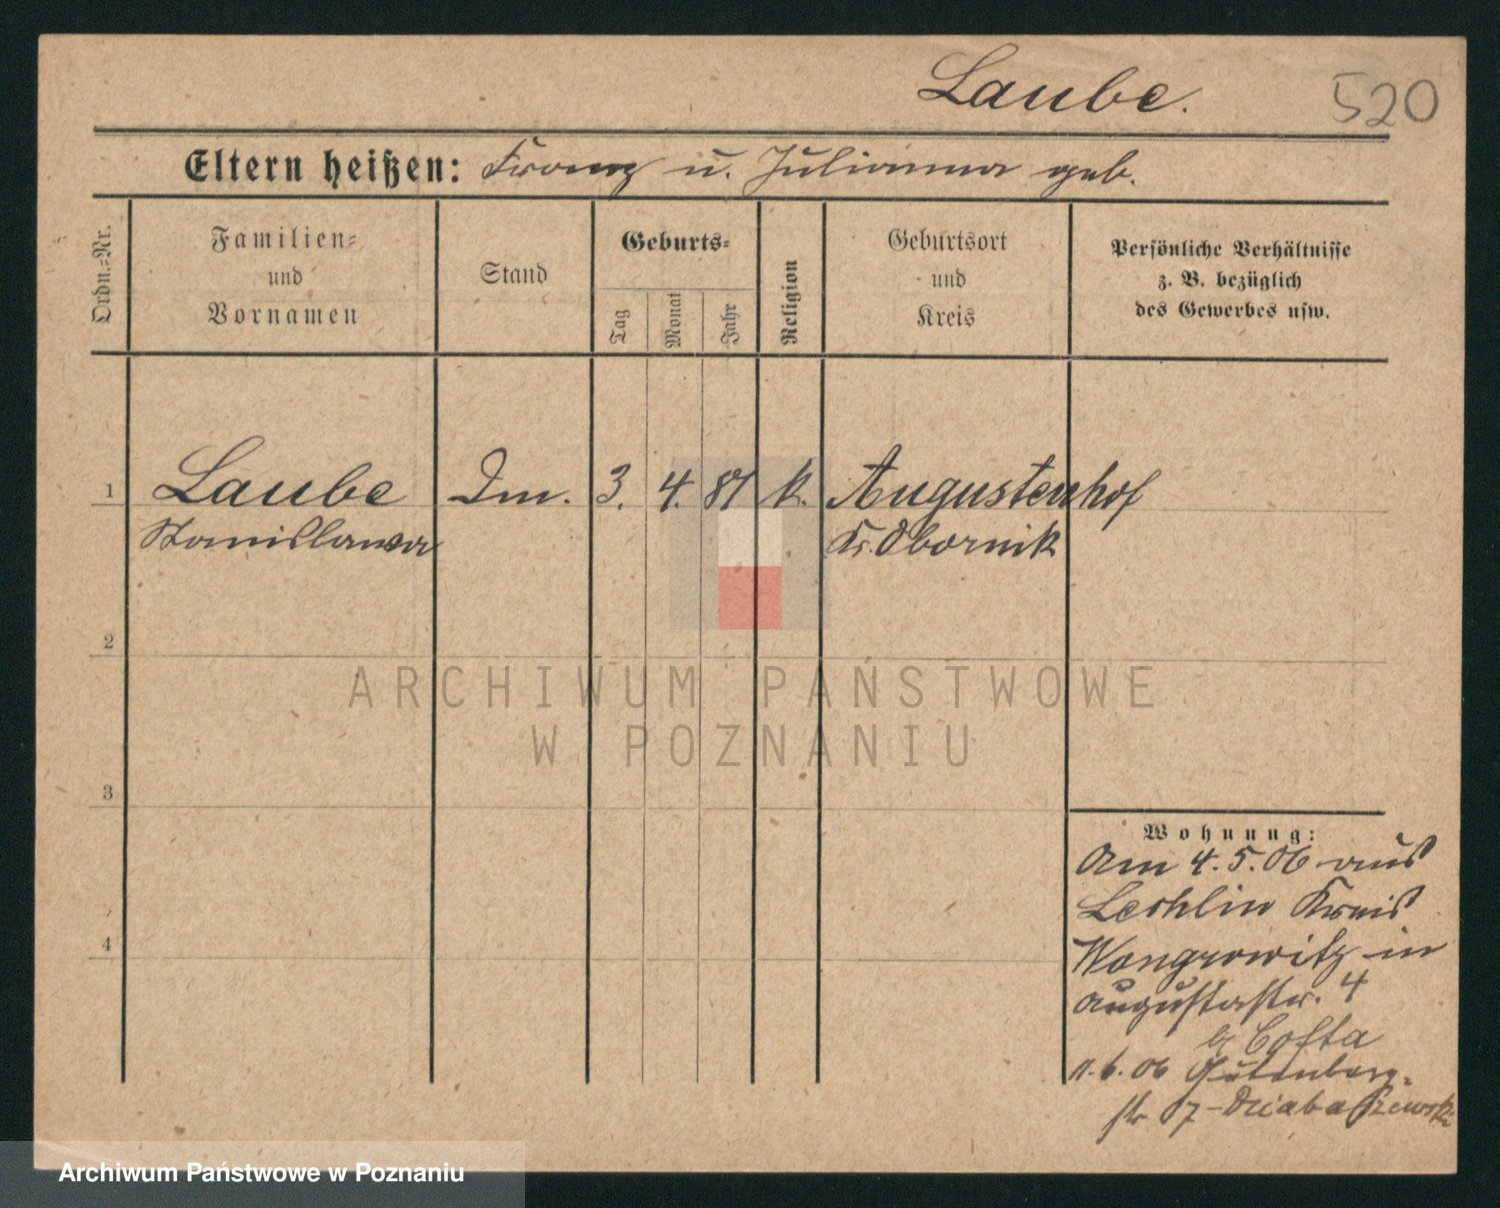 Laube.
520
Eltern heißen: Franz u. Julianna geb.
Ordn.-Nr.
Familien-
und
Vornamen
Stand
Geburts-
Tag
Monat
Jahr
Religion
Geburtsort
und
Kreis
Persönliche Verhältnisse
z. B. bezüglich
des Gewerbes usw.
1 Laube Dm. 3. 4. 87 k. Augustenhof
Stanislawa Kr. Obornik
2
3
4
Wohnung:
Am 4.5.06 aus
Lechlin Kreis
Wongrowitz in
Augustastr. 4
b/ Costa
11.6.06 Gutenberg-
str 7-
ARCHIWUM PAŃSTWOWE
W POZNANIU
Archiwum Państwowe w Poznaniu